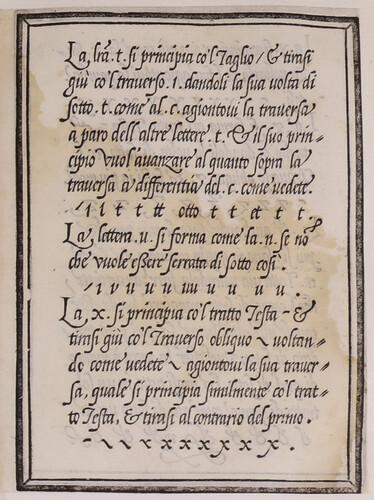 La, lrã. t. si principia co'l Taglio / & tirasi
giù co'l traverso. ı. dandoli la sua volta di
sotto. t. come al. c. agiontovi la traversa
a paro dell altre lettere. t. & il suo prin=
cipio vuol' avanzare al quanto sopra la
traversa à differentia del. c. come vedete.
/ ı l t t tt otto t t et t t.
La, lettera. u. si forma come la. n. se no
che vuole eßere serrata di sotto cosi.
/ ı v u u u u u u u u.
La, x. si principia co'l tratto Testa - &
tirasi giù co'l Traverso obliquo ~ voltan=
do come vedete ~ agiontovi la sua traver=
sa, quale si principia similmente co'l trat=
to Testa, & tirasi al contrario del primo.
- ~ ~ x x x x x x x.